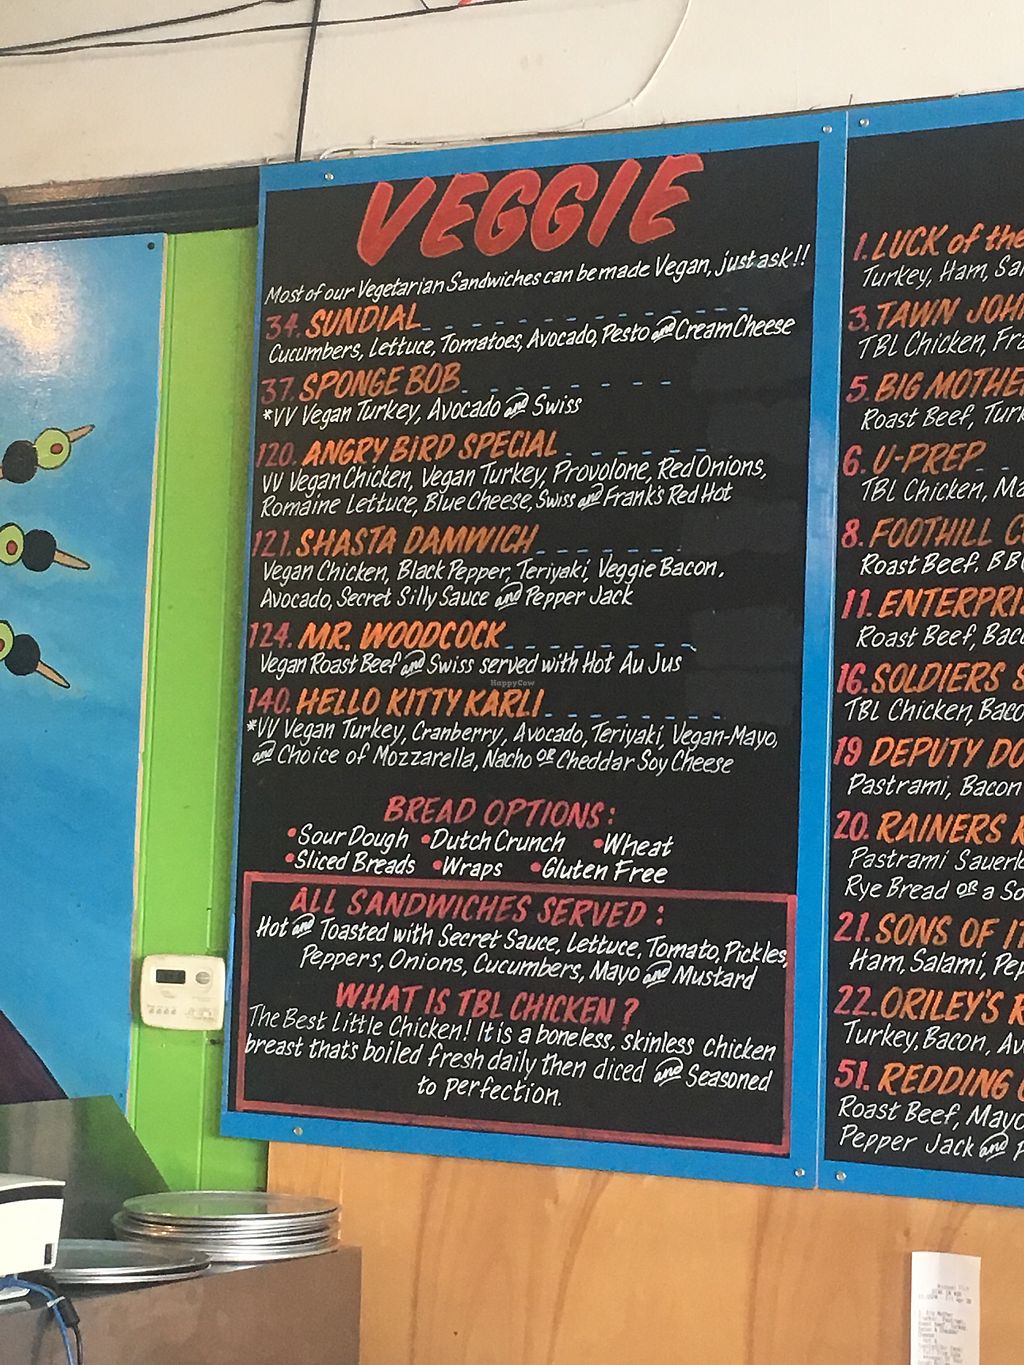 VEGGIE
Most of our Vegetarian Sandwiches can be made Vegan, just ask!!
34. SUNDIAL
Cucumbers, Lettuce, Tomatoes, Avocado, Pesto and Cream Cheese
37. SPONGE BOB
*VV Vegan Turkey, Avocado and Swiss
120. ANGRY BIRD SPECIAL
VV Vegan Chicken, Vegan Turkey, Provolone, Red Onions,
Romaine Lettuce, Blue Cheese, Swiss and Frank's Red Hot
121. SHASTA DAMWICH
Vegan Chicken, Black Pepper, Teriyaki, Veggie Bacon,
Avocado, Secret Silly Sauce and Pepper Jack
124. MR. WOODCOCK
Vegan Roast Beef and Swiss served with Hot Au Jus
HappyCow
140. HELLO KITTY KARLI
*VV Vegan Turkey, Cranberry, Avocado, Teriyaki, Vegan-Mayo,
and Choice of Mozzarella, Nacho OR Cheddar Soy Cheese
BREAD OPTIONS:
• Sour Dough • Dutch Crunch • Wheat
• Sliced Breads • Wraps • Gluten Free
ALL SANDWICHES SERVED:
Hot and Toasted with Secret Sauce, Lettuce, Tomato, Pickles,
Peppers, Onions, Cucumbers, Mayo and Mustard
WHAT IS TBL CHICKEN?
The Best Little Chicken! It is a boneless, skinless chicken
breast that's boiled fresh daily then diced and Seasoned
to perfection.
1. LUCK of the
Turkey, Ham,
3. TAWN
TBL Chicken,
5. BIG
Roast Beef,
6. U-PREP
TBL Chicken,
8. FOOTHILL
Roast Beef,
11.
Roast Beef,
16. SOLDIERS
TBL Chicken,
19 DEPUTY
Pastrami, Bacon
20. RAINERS
Pastrami
Rye Bread OR a
21. SONS OF
Ham, Salami,
22. ORILEY'S
Turkey, Bacon,
51. REDDING
Roast Beef,
Pepper Jack and